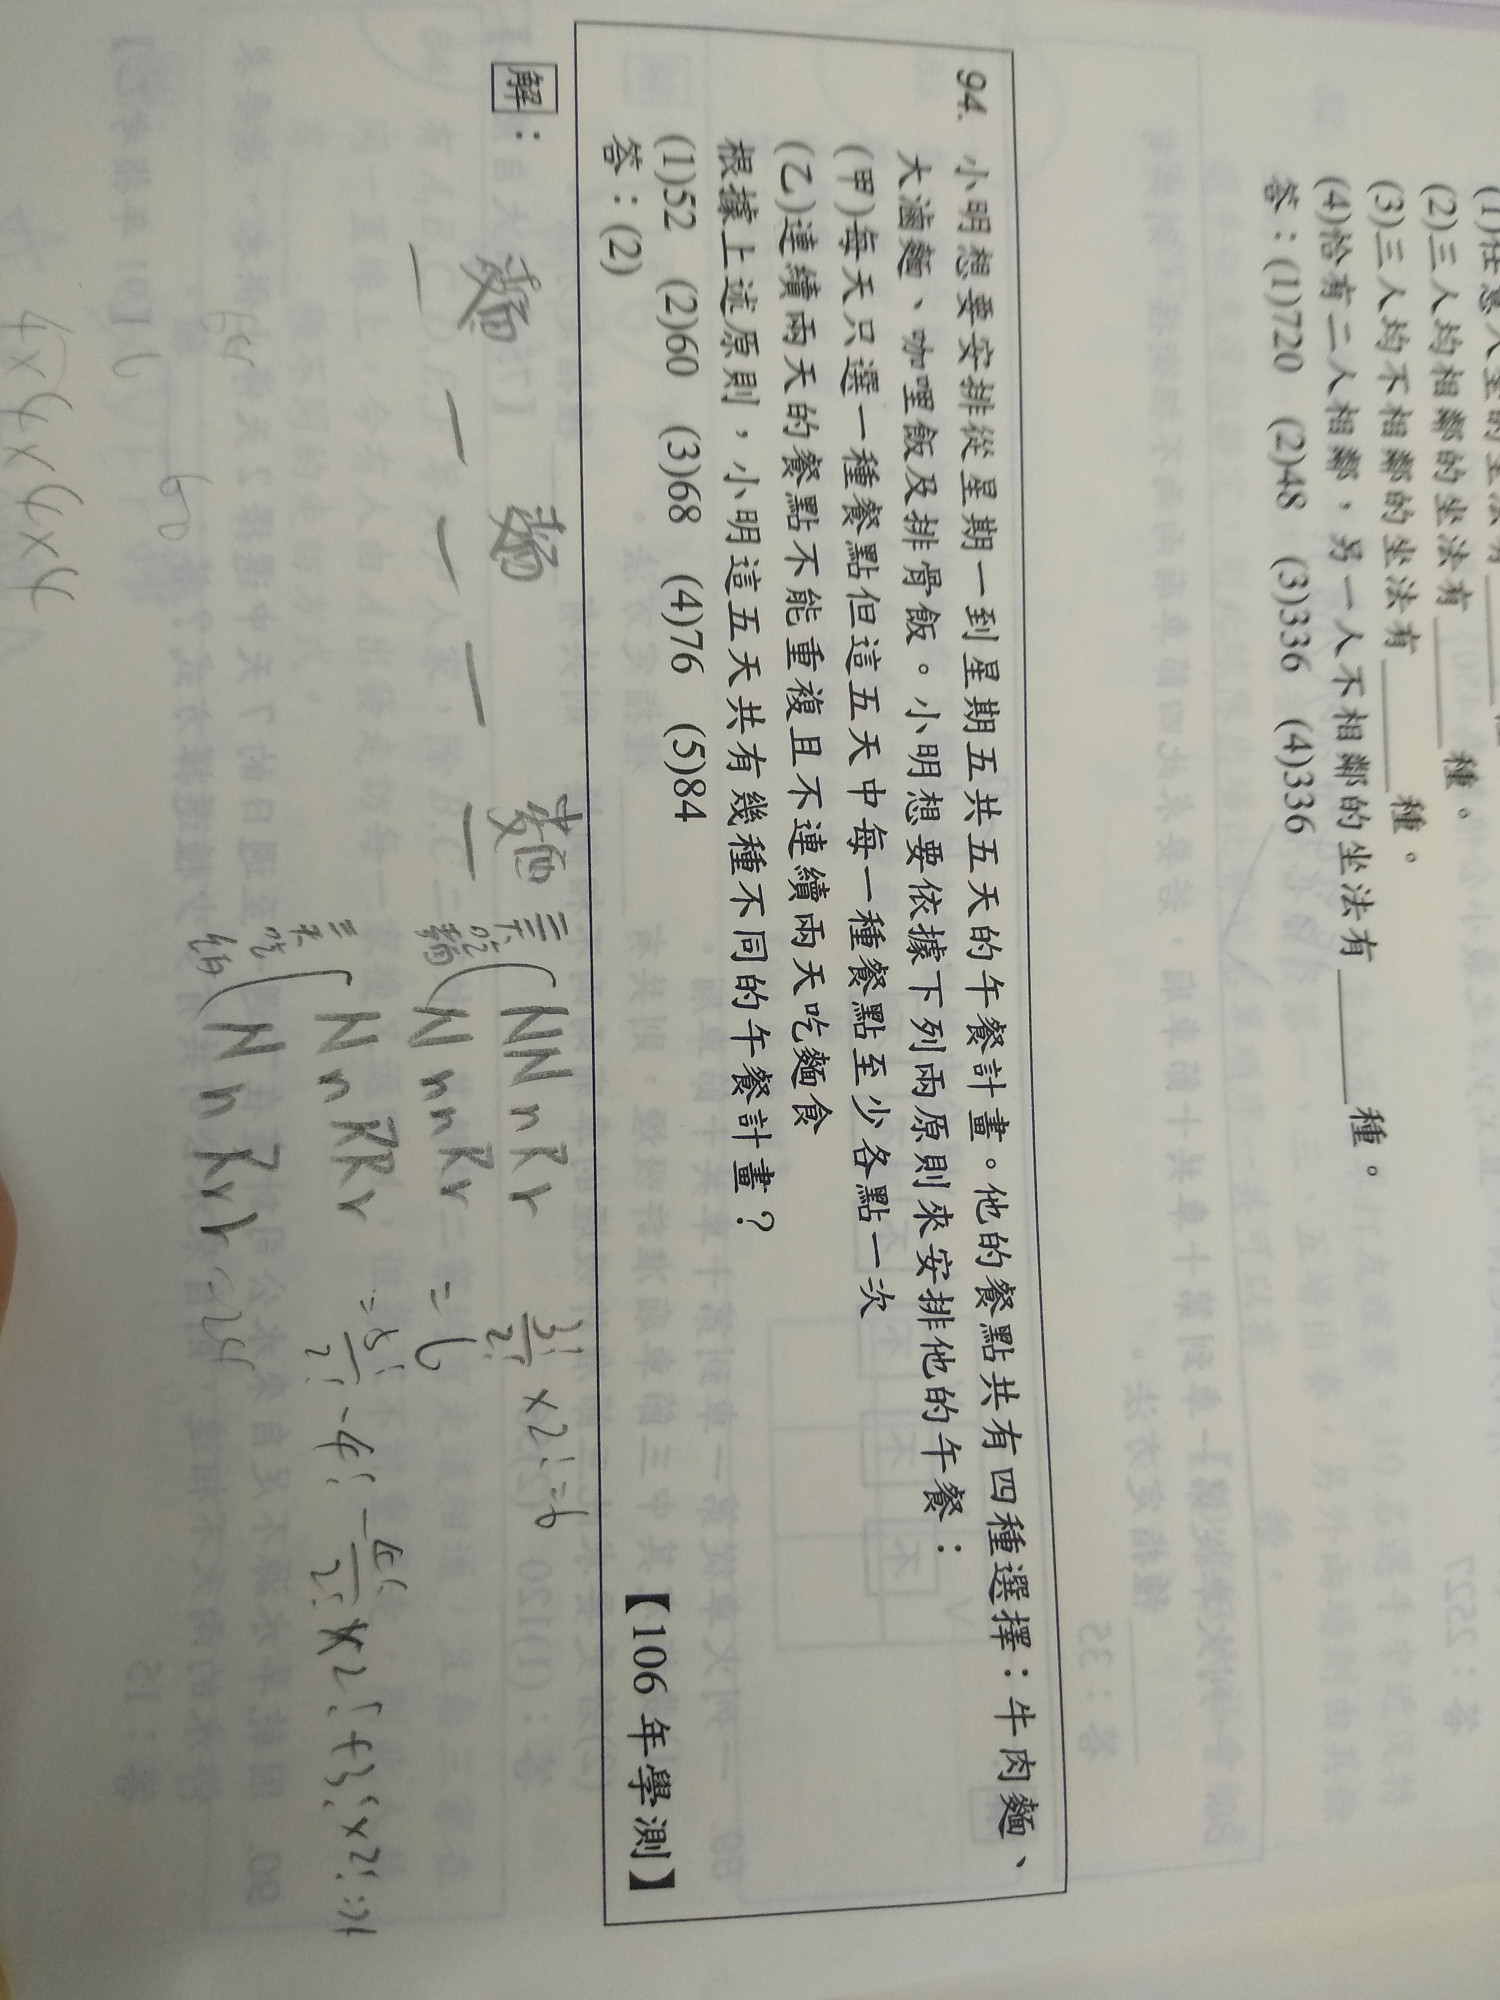 (2)三人均相鄰的坐法有______種。
(3)三人均不相鄰的坐法有______種。
(4)恰有二人相鄰，另一人不相鄰的坐法有______種。
答：(1)720 (2)48 (3)336 (4)336
94. 小明想要安排從星期一到星期五共五天的午餐計畫。他的餐點共有四種選擇：牛肉麵、
大滷麵、咖哩飯及排骨飯。小明想要依據下列兩原則來安排他的午餐：
(甲)每天只選一種餐點但這五天中每一種餐點至少各點一次
(乙)連續兩天的餐點不能重複且不連續兩天吃麵食
根據上述原則，小明這五天共有幾種不同的午餐計畫？
(1)52 (2)60 (3)68 (4)76 (5)84
答：(2)
【106 年學測】
解：
三天吃麵
NNnRr 3!/2! ×2!=6
NnnRr =6
三天吃飯
NnRRr =5!/2! -4! -4!/2! ×2!+3!×2!=
NnRrr =24
60
4×4×4×4